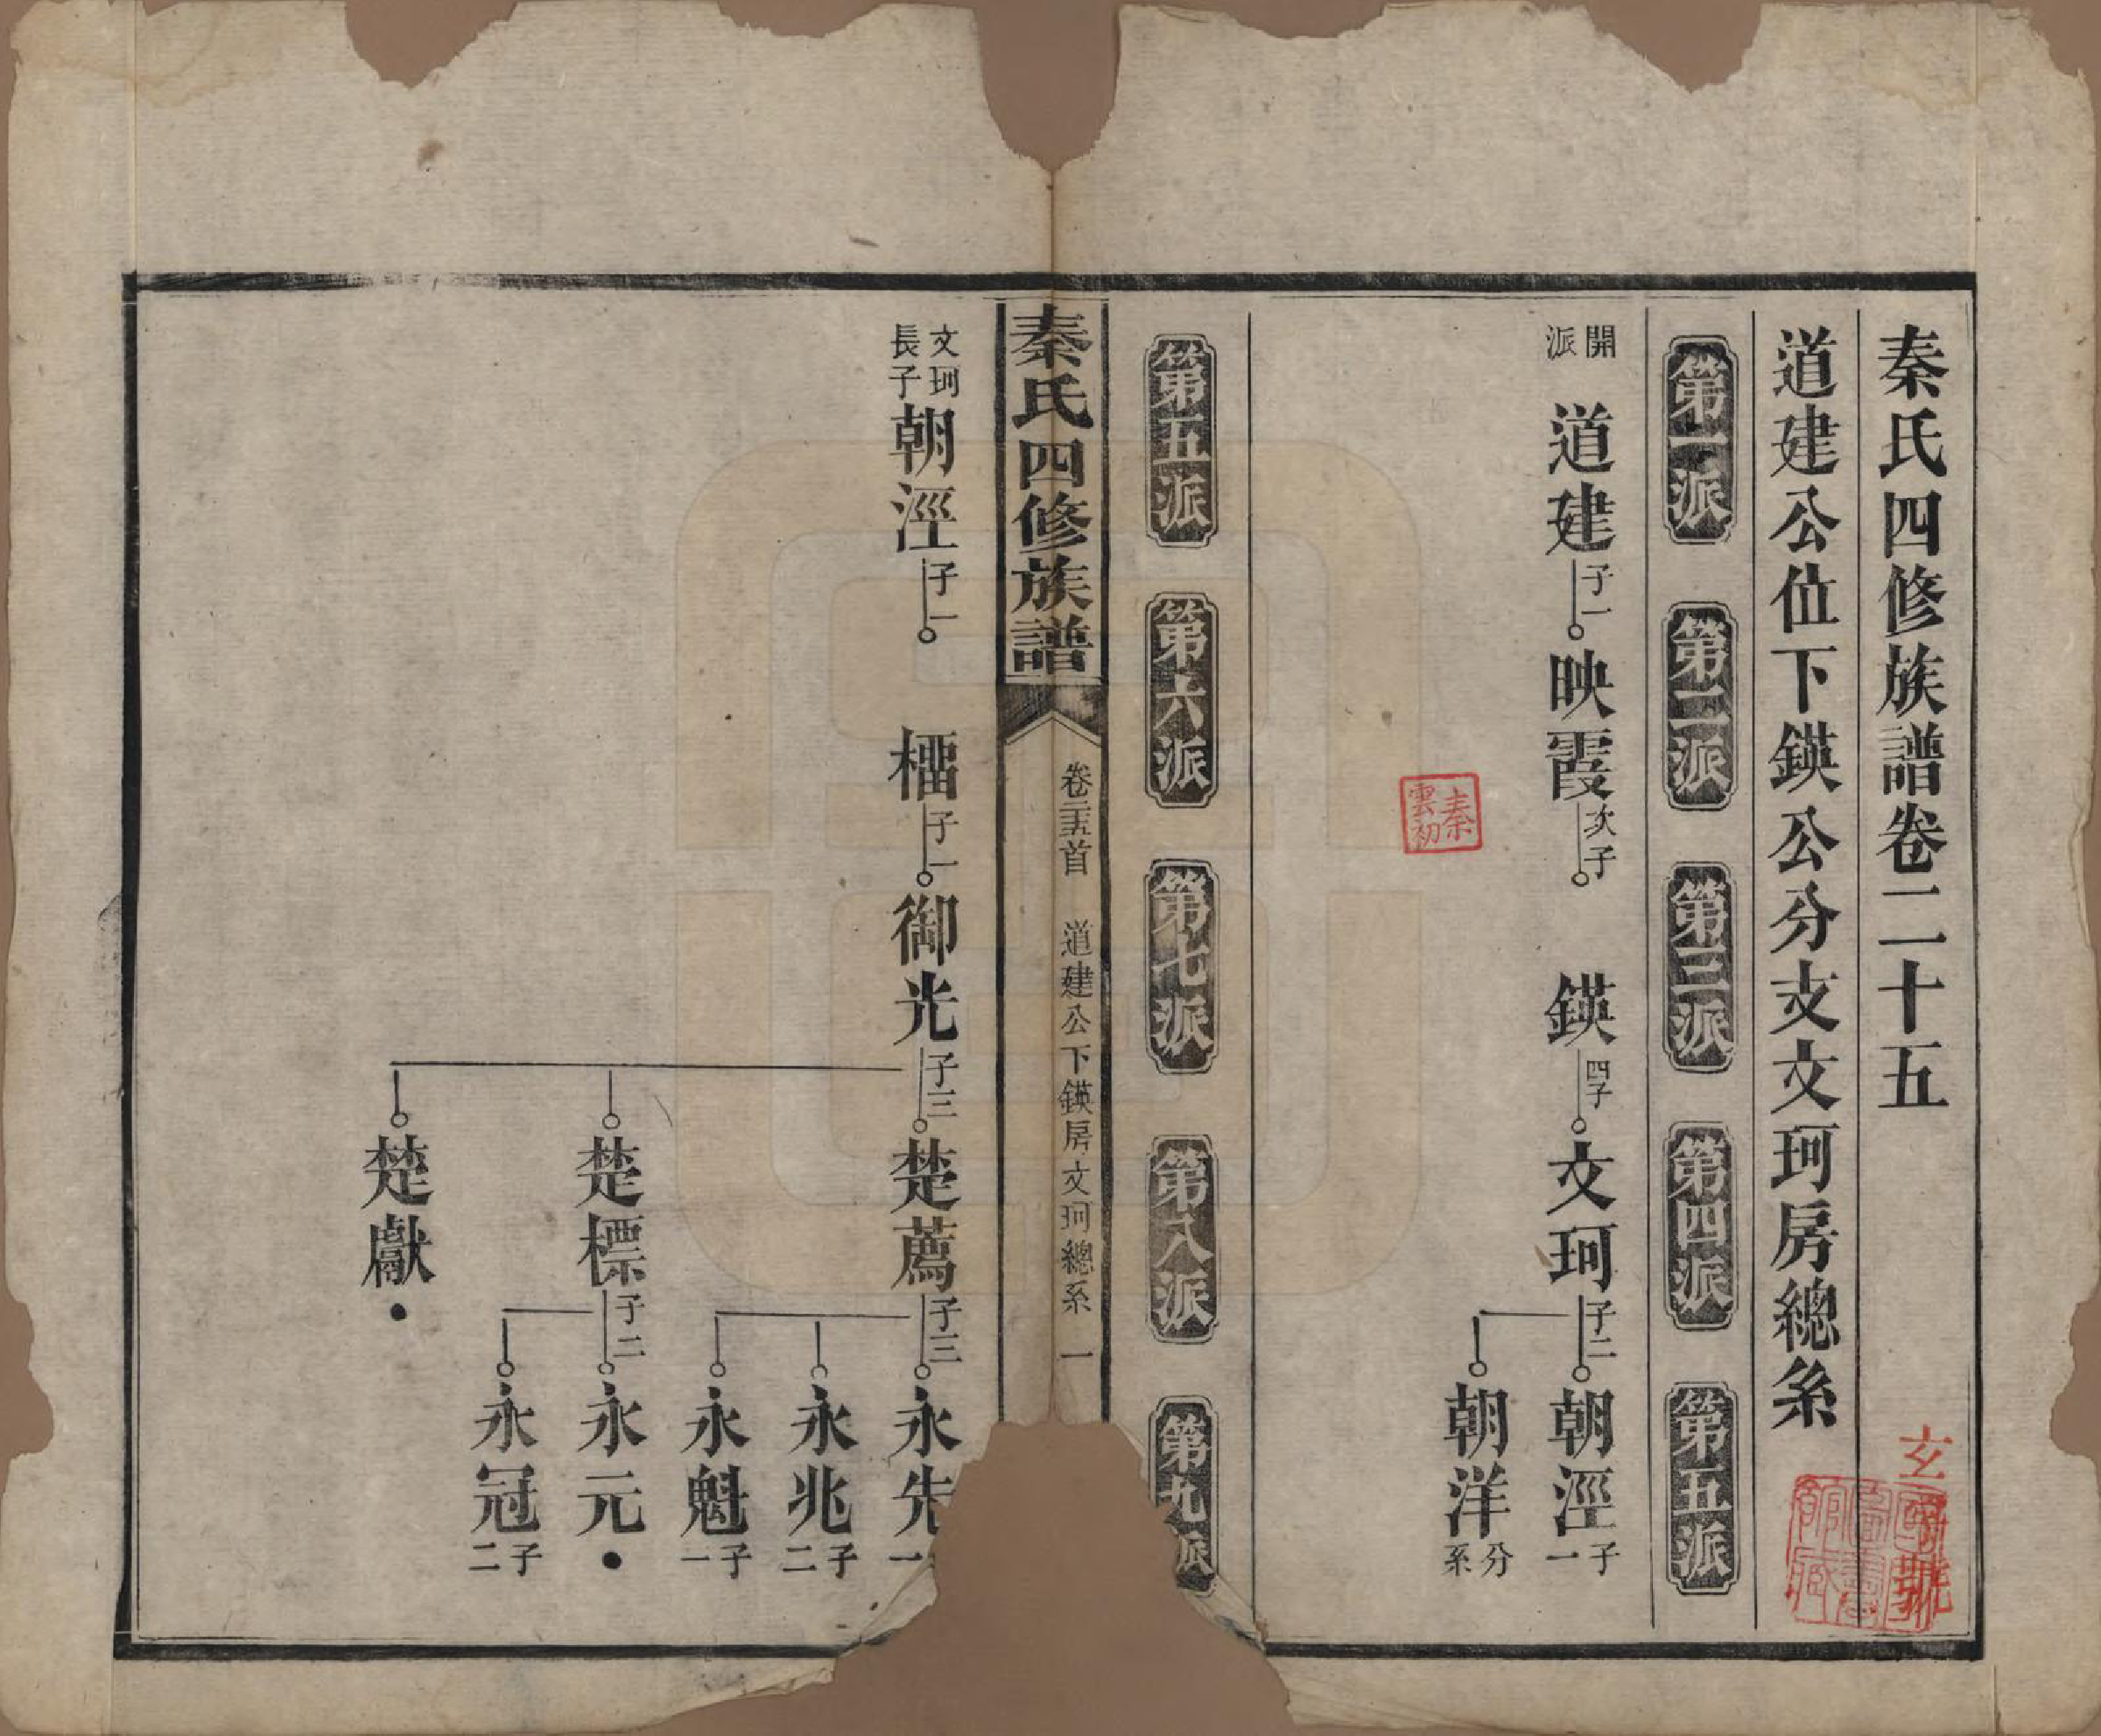 秦氏四修族譜卷二十五
道建公位下鍈公分支文珂房總系
第一派 第二派 第三派 第四派 第五派
開派 道建 子一 映霞 次子 鍈 四子 文珂 子二 朝涇 子一
朝洋 分系
秦雲初
第五派 第六派 第七派 第八派 第九派
秦氏四修族譜 卷二十五首 道建公下鍈房文珂總系 一
文珂長子 朝涇 子一 橊 子一 御光 子三 楚薦 子三 永先
永兆 子二
永魁 子一
楚標 子二 永元
永冠 子二
楚獻